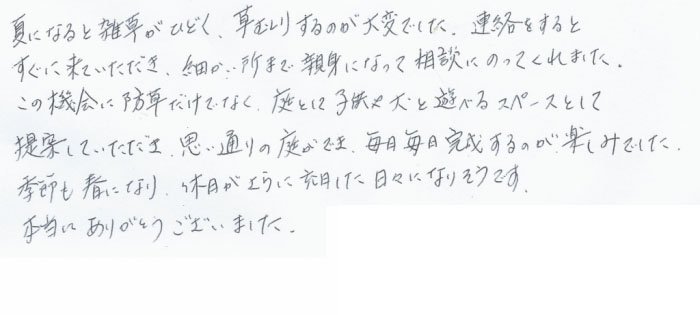 夏になると雑草がひどく、草むしりするのが大変でした。連絡をすると
すぐに来ていただき、細かい所まで親身になって相談にのってくれました。
この機会に防草だけでなく、庭として子供や犬と遊べるスペースとして
提案していただき、思い通りの庭ができ、毎日毎日完成するのが楽しみでした。
季節も春になり、休日がさらに充実した日々になりそうです。
本当にありがとうございました。